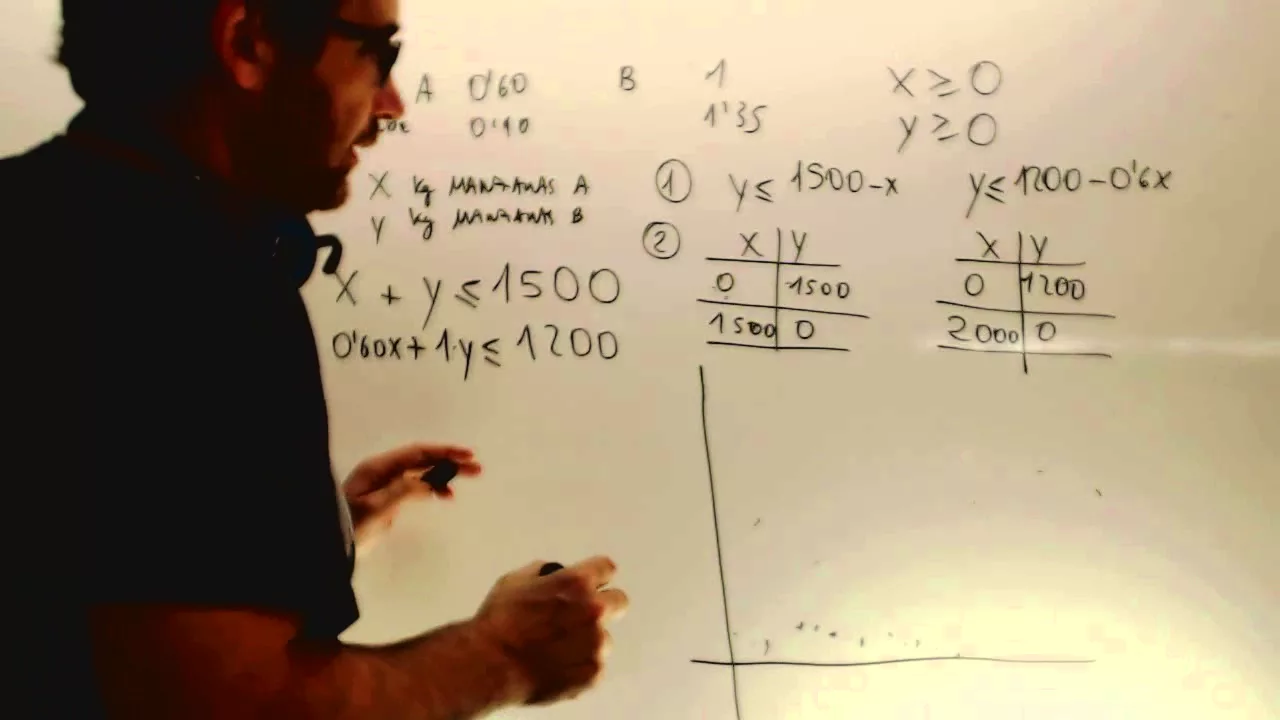 A 0'60 B 1
0'90 1'35
X kg MANZANAS A
Y kg MANZANAS B
X + y ≤ 1500
0'60x + 1·y ≤ 1200
X ≥ 0
y ≥ 0
① y ≤ 1500-x y ≤ 1200-0'6x
② X y X y
0 1500 0 1200
1500 0 2000 0